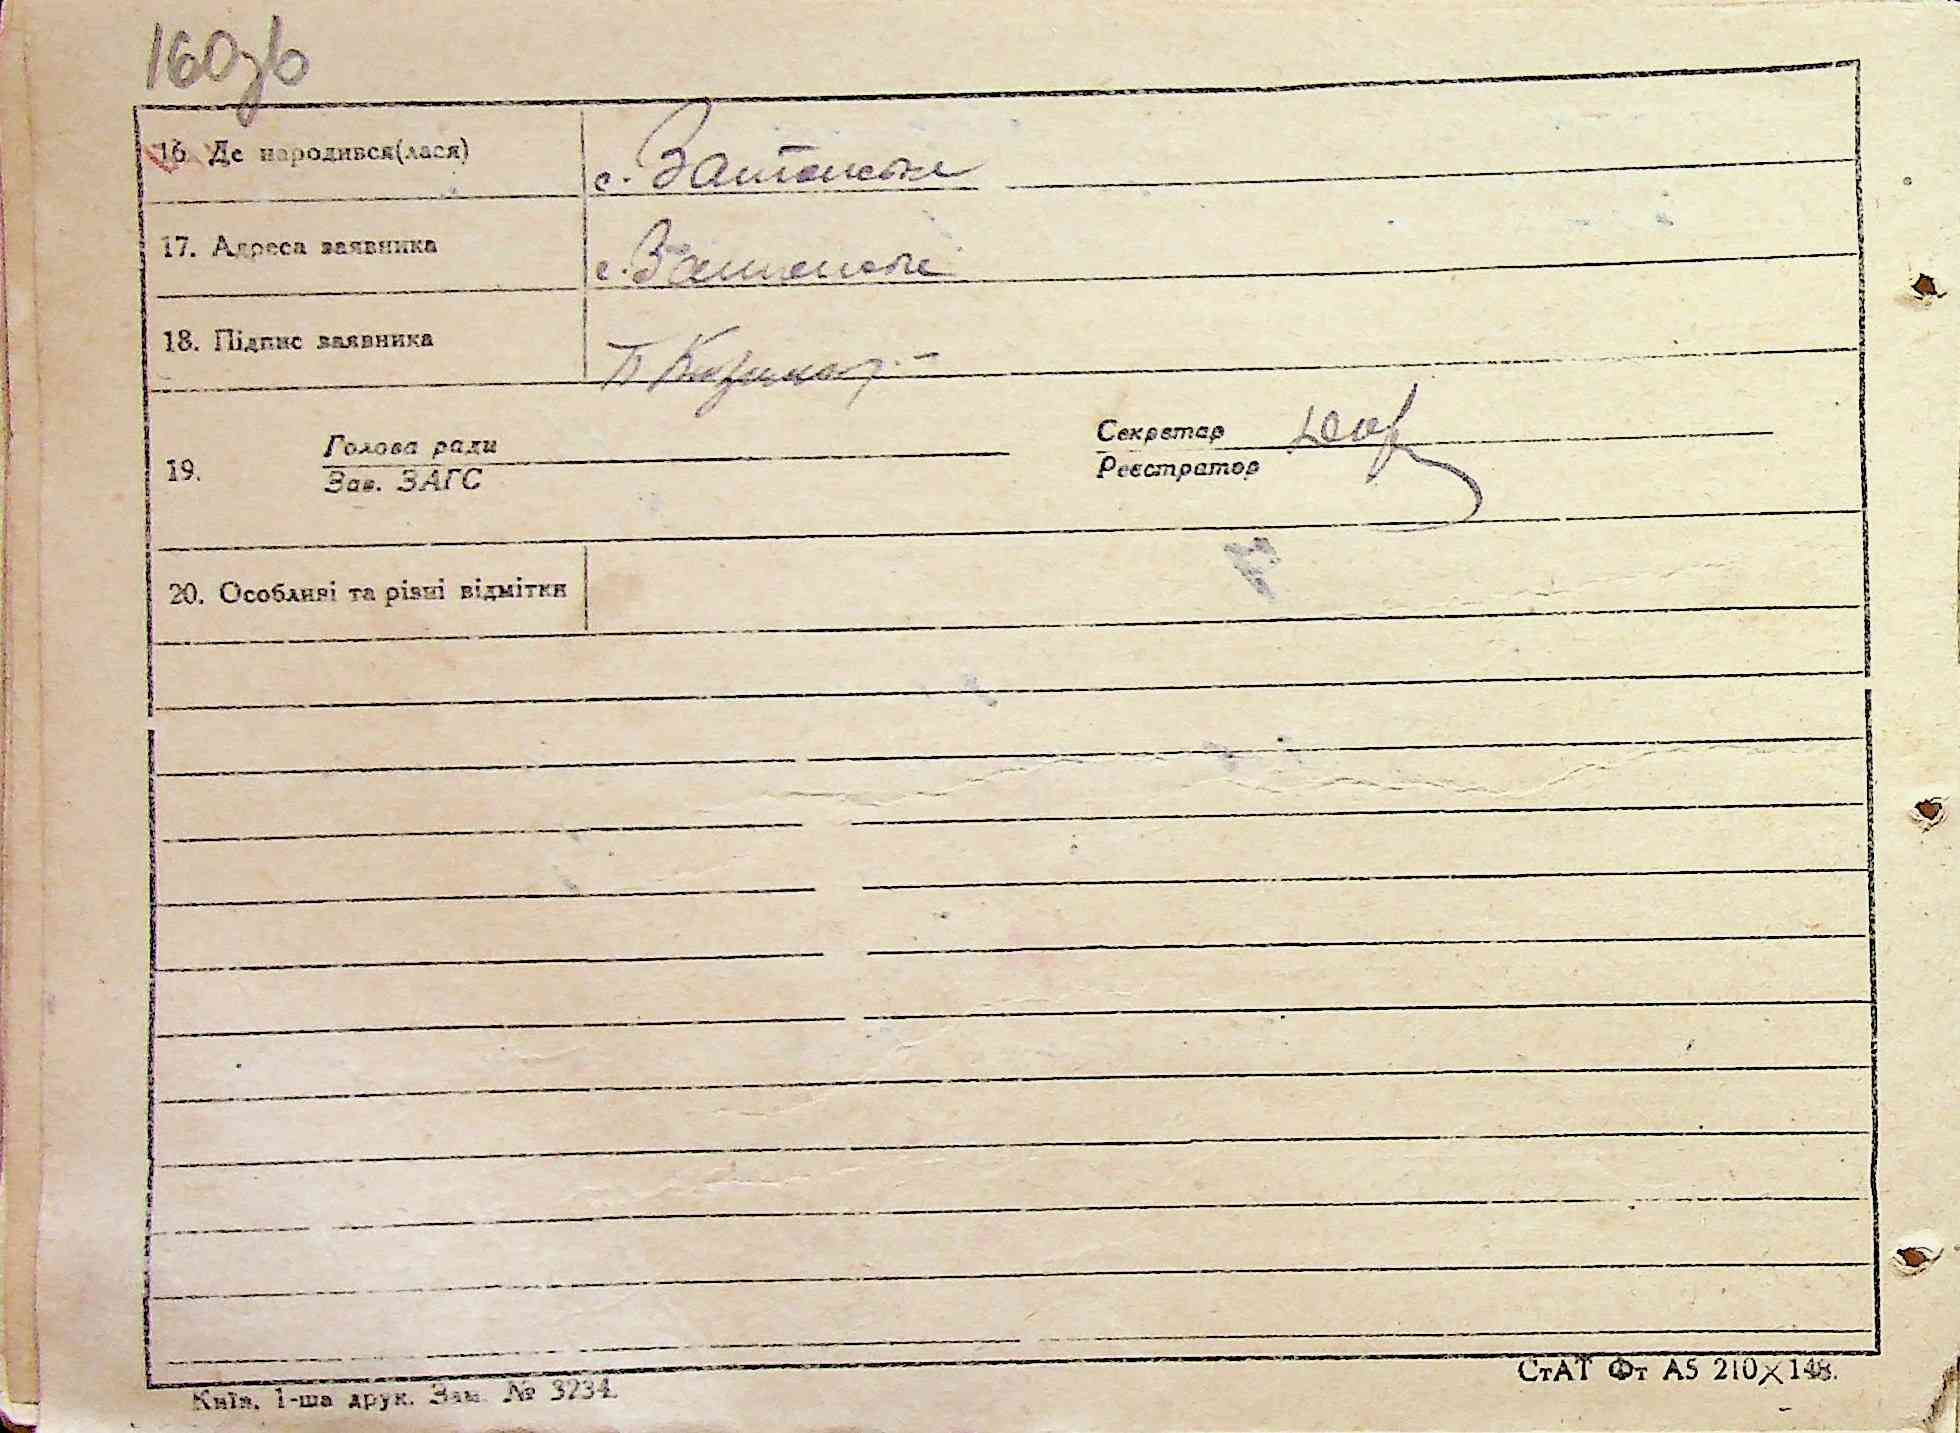 160зв
16. Де народився(лася)
с.
17. Адреса заявника
с.
18. Підпис заявника
П
Голова ради
Секретар
19.
Зав. ЗАГС
Реєстратор
20. Особливі та різні відмітки
Київ. 1-ша друк. Зам. № 3234.
СтАТ Фт А5 210×148.